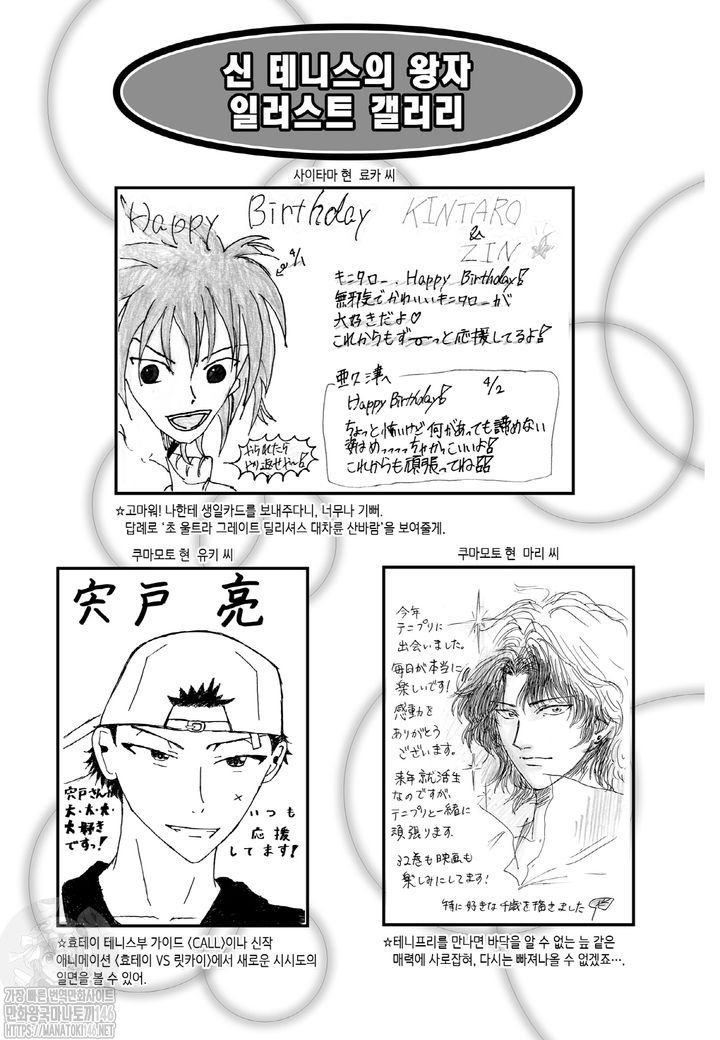 신 테니스의 왕자
일러스트 갤러리
사이타마 현 료카 씨
Happy Birthday KINTARO
&
ZIN
4/1
キンタロー、Happy Birthday!
無邪気でかわいいキンタローが
大好きだよ♡
これからもずーっと応援してるよ!
亜久津へ 4/2
Happy Birthday!
ちょっと怖いけど何があっても諦めない
姿はめっっっっちゃかっこいいよ!
これからも頑張ってね!!
やられたら
やり返せやー!
☆고마워! 나한테 생일카드를 보내주다니, 너무나 기뻐.
답례로 ‘초 울트라 그레이트 딜리셔스 대차륜 산바람’을 보여줄게.
쿠마모토 현 유키 씨
宍戸 亮
宍戸さんが
大・大・大・
大好き
ですっ!
いつも
応援
してます!
☆효테이 테니스부 가이드 〈CALL〉이나 신작
애니메이션 〈효테이 VS 릿카이〉에서 새로운 시시도의
일면을 볼 수 있어.
쿠마모토 현 마리 씨
今年
テニプリに
出会いました。
毎日が本当に
楽しいです!
感動を
ありがとう
ございます。
来年就活生
なのですが、
テニプリと一緒に
頑張ります。
32巻も映画も
楽しみにしてます!
特に好きな千歳を描きました
☆테니프리를 만나면 바닥을 알 수 없는 늪 같은
매력에 사로잡혀, 다시는 빠져나올 수 없겠죠….
가장 빠른 번역만화사이트
만화왕국마나토끼146
HTTPS://MANATOKI146.NET